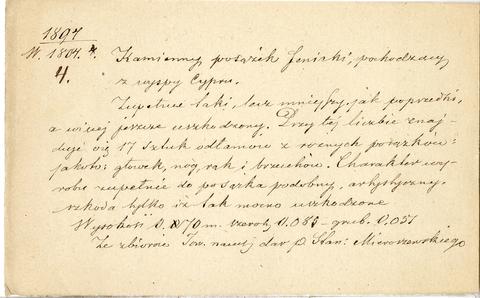 1897
N. 1804. 4.
4.
Kamienny posążek feniski, pochodzący
z wyspy Cypru.
Zupełnie taki, lecz mniejszy, jak poprzedki,
a więcej jeszcze uszkodzony. Przy tej liczbie znaj-
duje się 17 sztuk odłamów z różnych posążków:
jakoto: głowek, nóg, rąk i brzuchów. Charakter wy-
robu zupełnie do posążka podobny, artystyczny,
szkoda tylko iż tak mocno uszkodzone
Wysokość 0.170 m. szerok. 0.085 – grub. 0.051
Ze zbiorów Tow. nauk. dar p. Stan: Mieroszewskiego